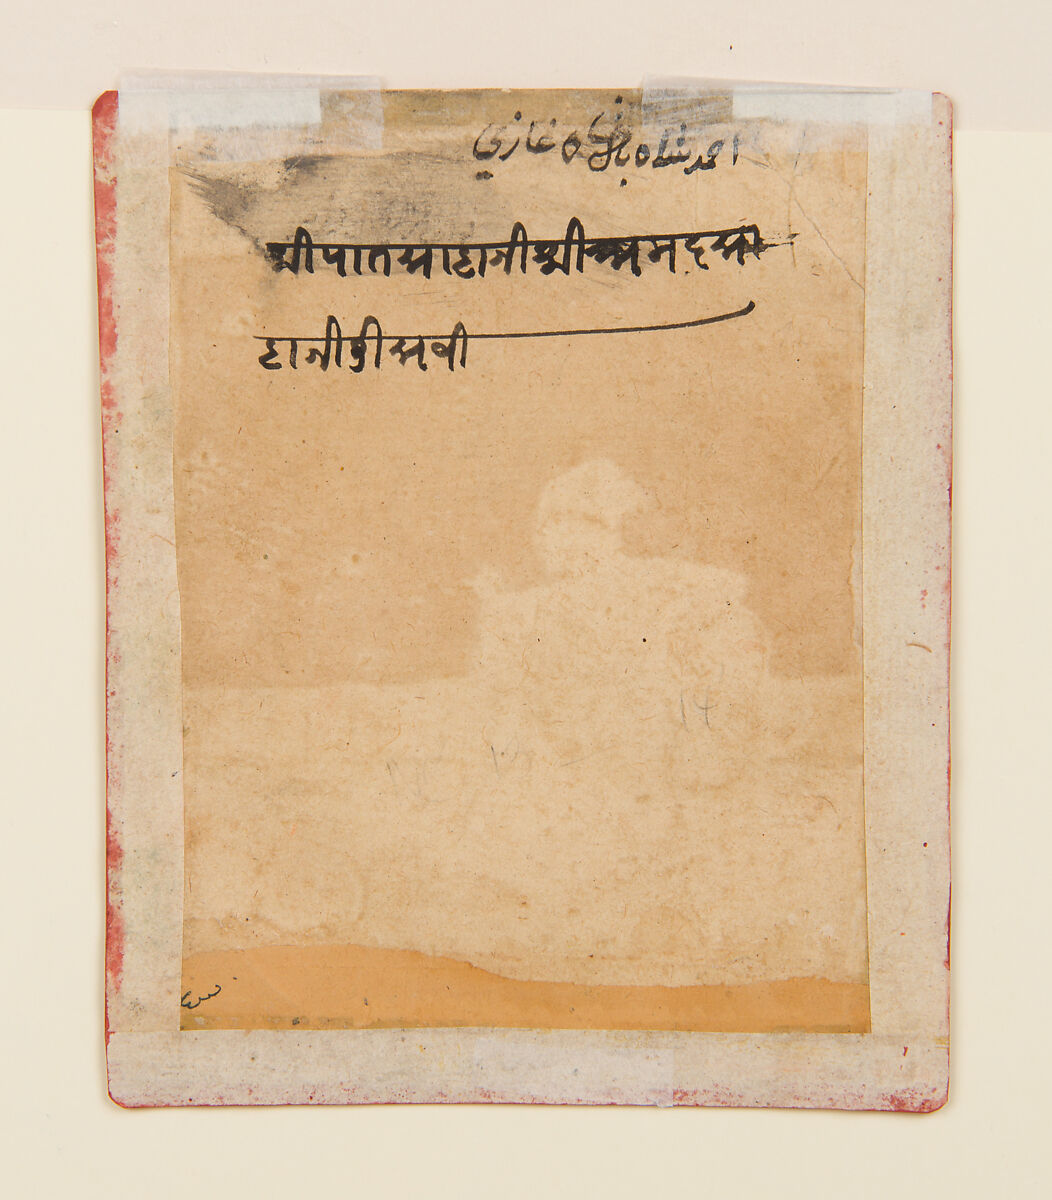 احمد شاه بادشاه غازي
श्रीपातसाहाजीश्रीअमदसा
हाजीदीसवी
14